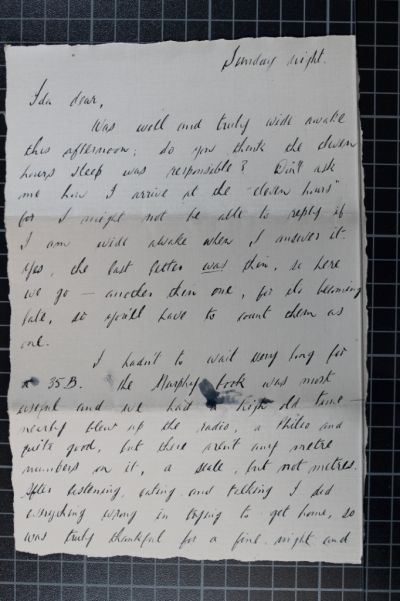 Sunday night.
Ida dear,
Was well and truly wide awake
this afternoon; do you think the eleven
hours sleep was responsible? Don't ask
me how I arrive at the "eleven hours"
for I might not be able to reply if
I am wide awake when I answer it.
Yes, the last letter was thin, so here
we go — another thin one, for its becoming
late, so you'll have to count them as
one.
I hadn't to wait very long for
a 35B. The Murphy book was most
useful and we had high old time
nearby blew up the radio, a Philco and
quite good, but there arent any metre
numbers on it, a scale, but not metres.
After listening, eating and talking I did
everything wrong in trying to get home, so
was truly thankful for a fine night and